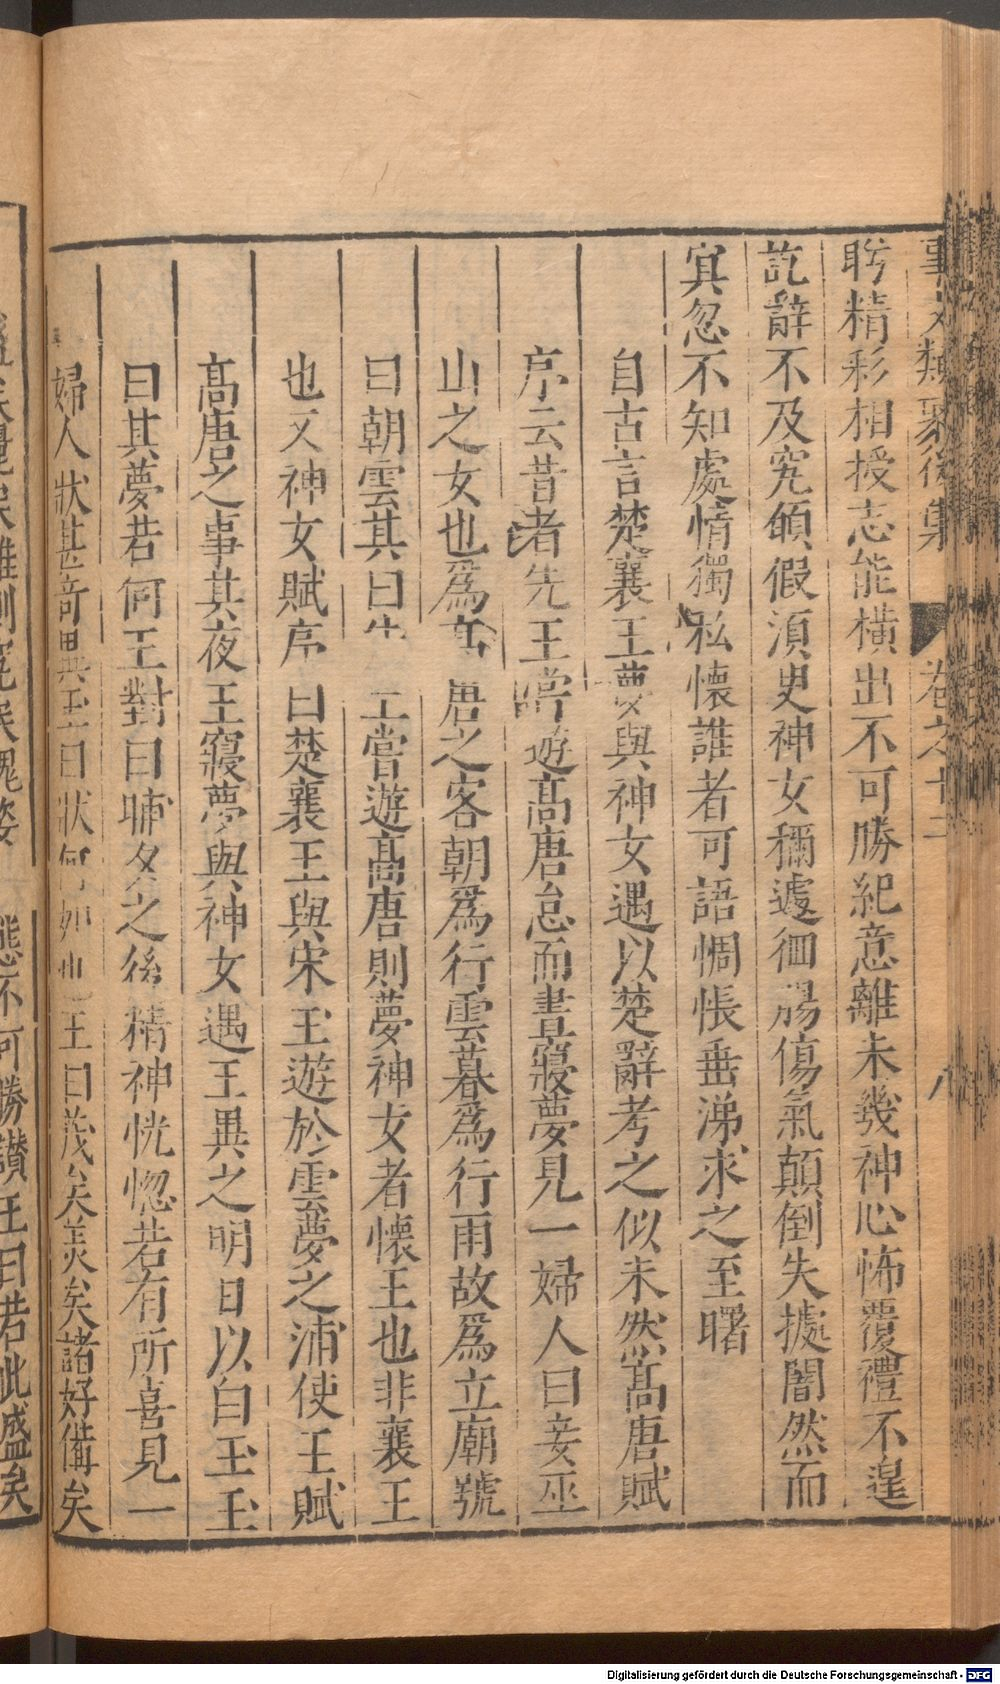 事文類聚後集
卷之十二
八
盻精彩相授志能橫出不可勝紀意離未幾神心怖覆禮不遑
訖辭不及究頷假湏史神女稱遽徊膓傷氣顛倒失據闇然而
㝠忽不知處情獨私懷誰者可語惆悵垂涕求之至曙
自古言楚襄王夢與神女遇以楚辭考之似未然髙唐賦
序云昔者先王甞遊髙唐怠而晝寢夢見一婦人曰妾巫
山之女也爲髙唐之客朝爲行雲暮爲行雨故爲立廟號
曰朝雲其曰先王嘗遊髙唐則夢神女者懷王也非襄王
也又神女賦序曰楚襄王與宋玉遊於雲夢之浦使王賦
髙唐之事其夜王寢夢與神女遇王異之明日以白玉玉
曰其夢若何王對曰晡夕之後精神恍惚若有所喜見一
婦人狀甚竒異玉曰狀何如也王曰茂矣羙矣諸好俻矣
態不可勝讃王曰若此盛矣
Digitalisierung gefördert durch die Deutsche Forschungsgemeinschaft - DFG